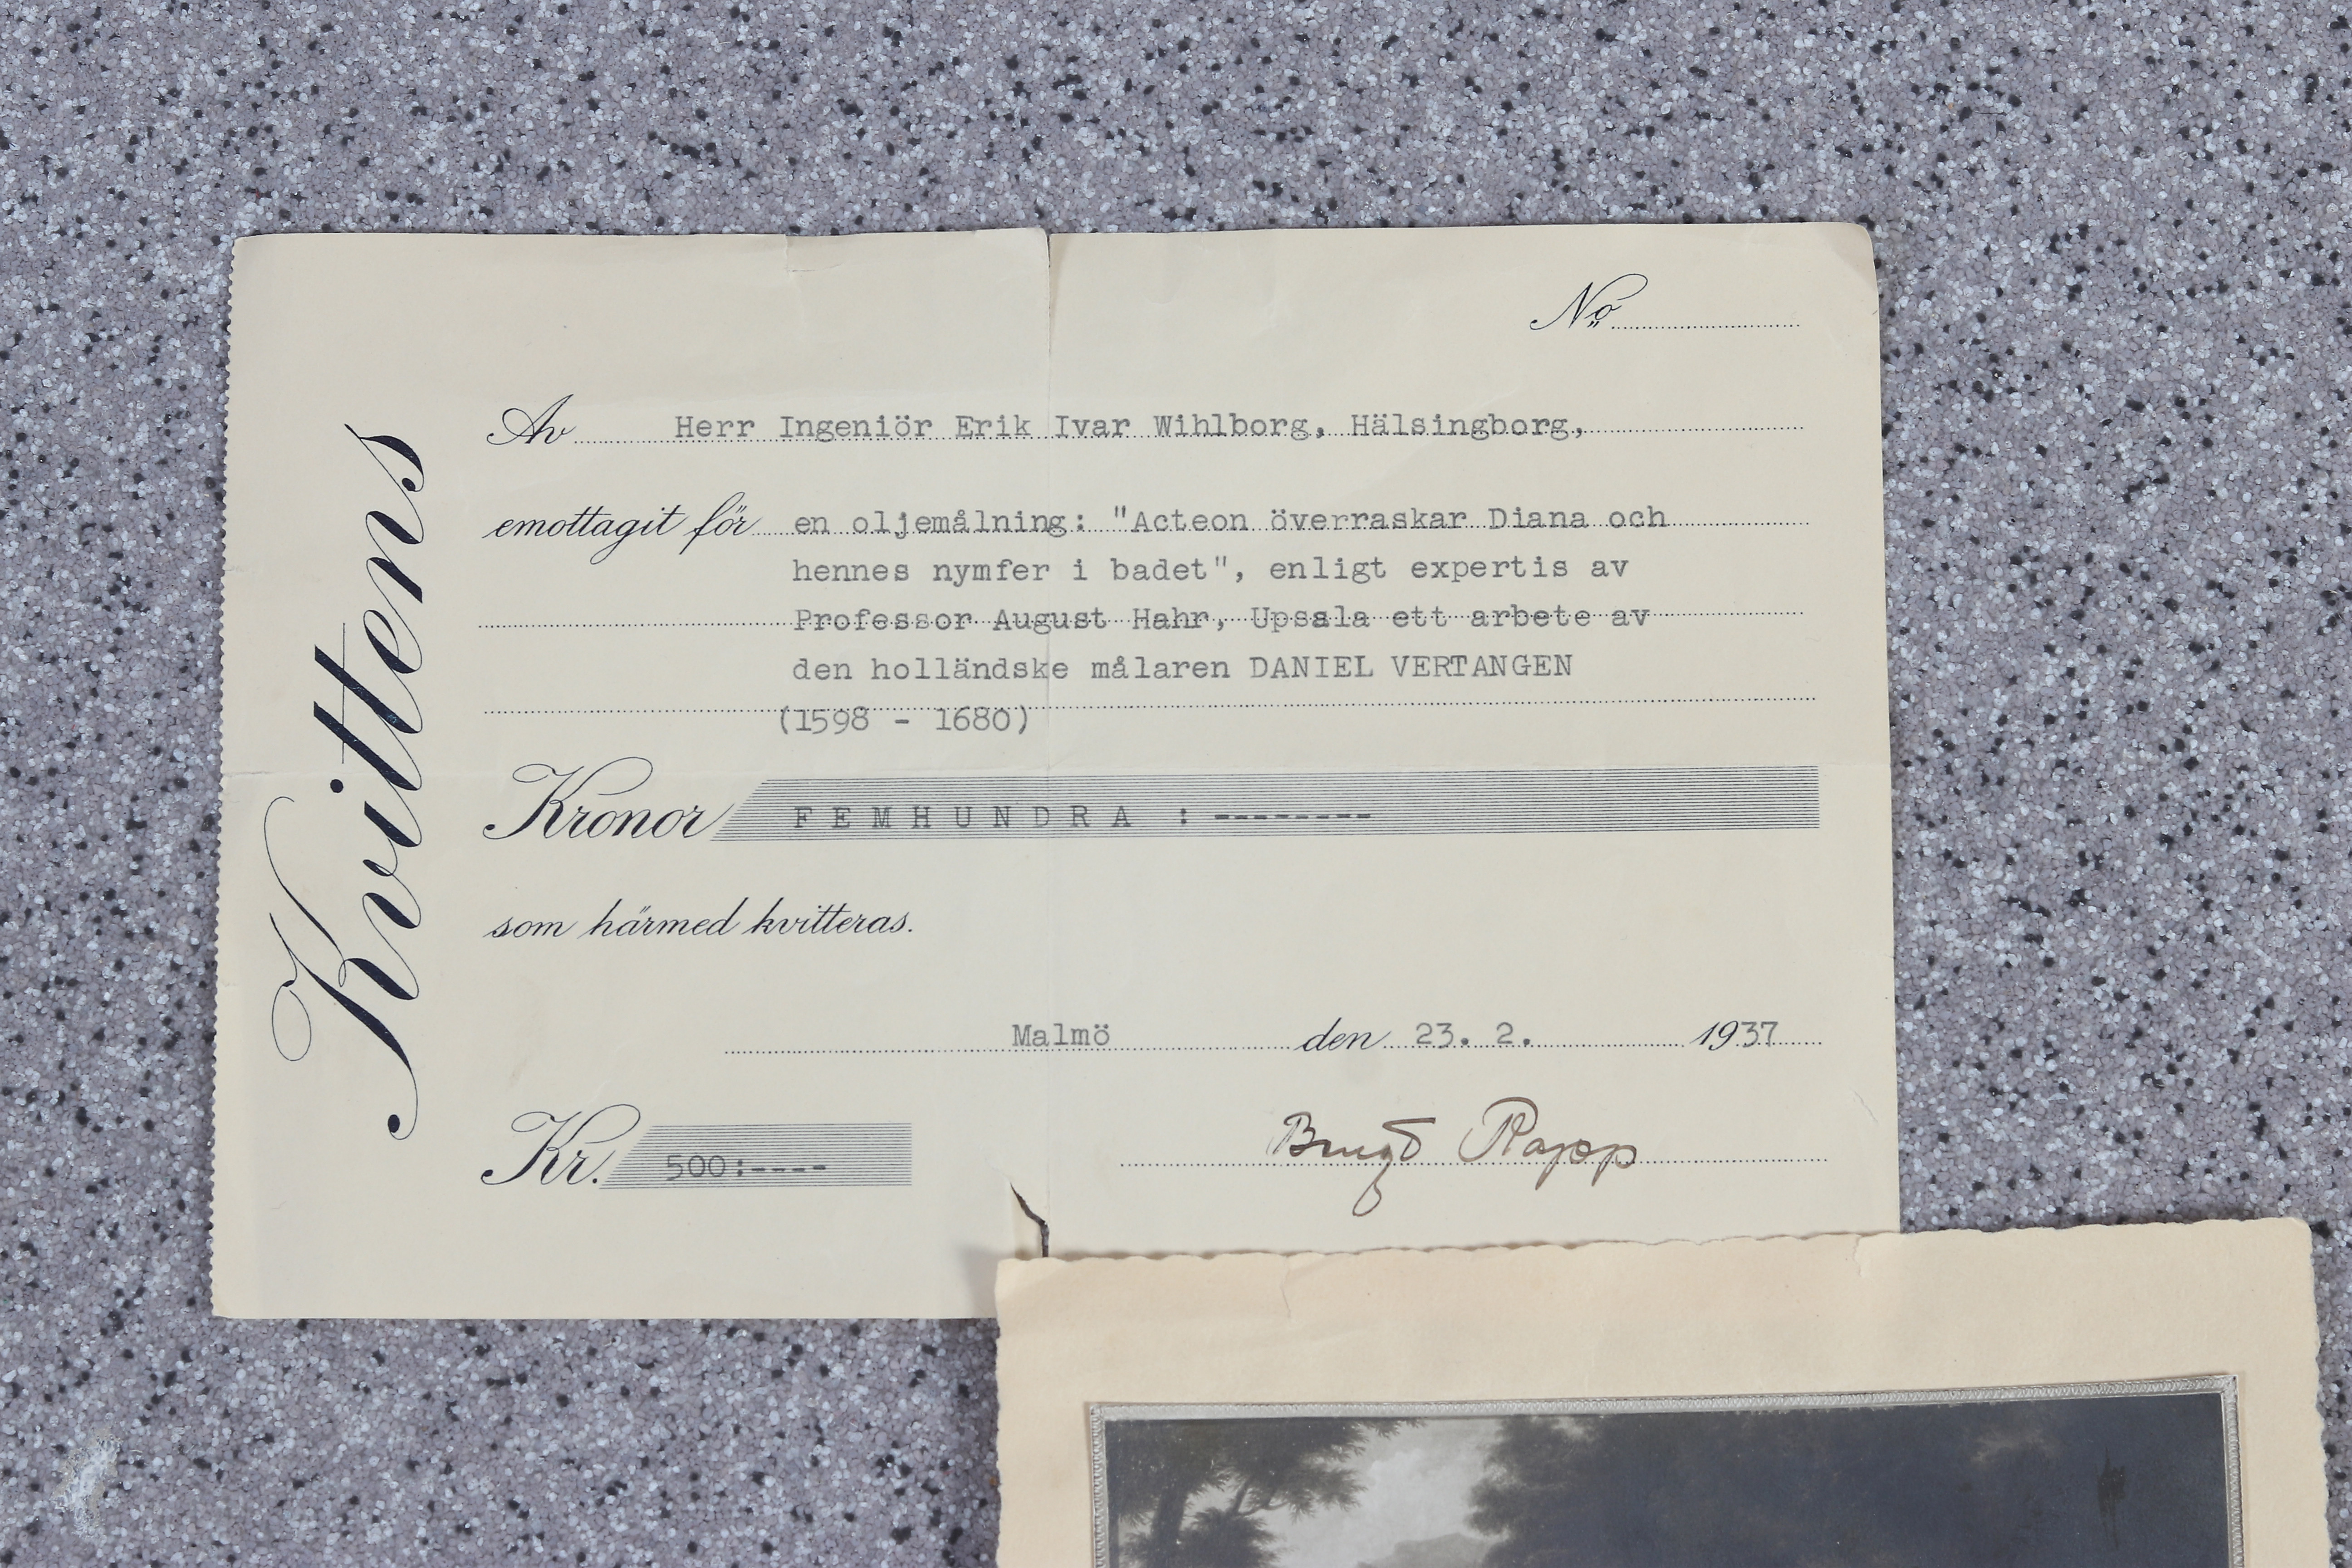 Kvittens
No
Av Herr Ingeniör Erik Ivar Wihlborg, Hälsingborg,
emottagit för en oljemålning: "Acteon överraskar Diana och
hennes nymfer i badet", enligt expertis av
Professor August Hahr, Upsala ett arbete av
den holländske målaren DANIEL VERTANGEN
(1598 - 1680)
Kronor FEMHUNDRA :--------
som härmed kvitteras.
Malmö den 23. 2. 1937
Kr. 500:----
Bengt Rapp